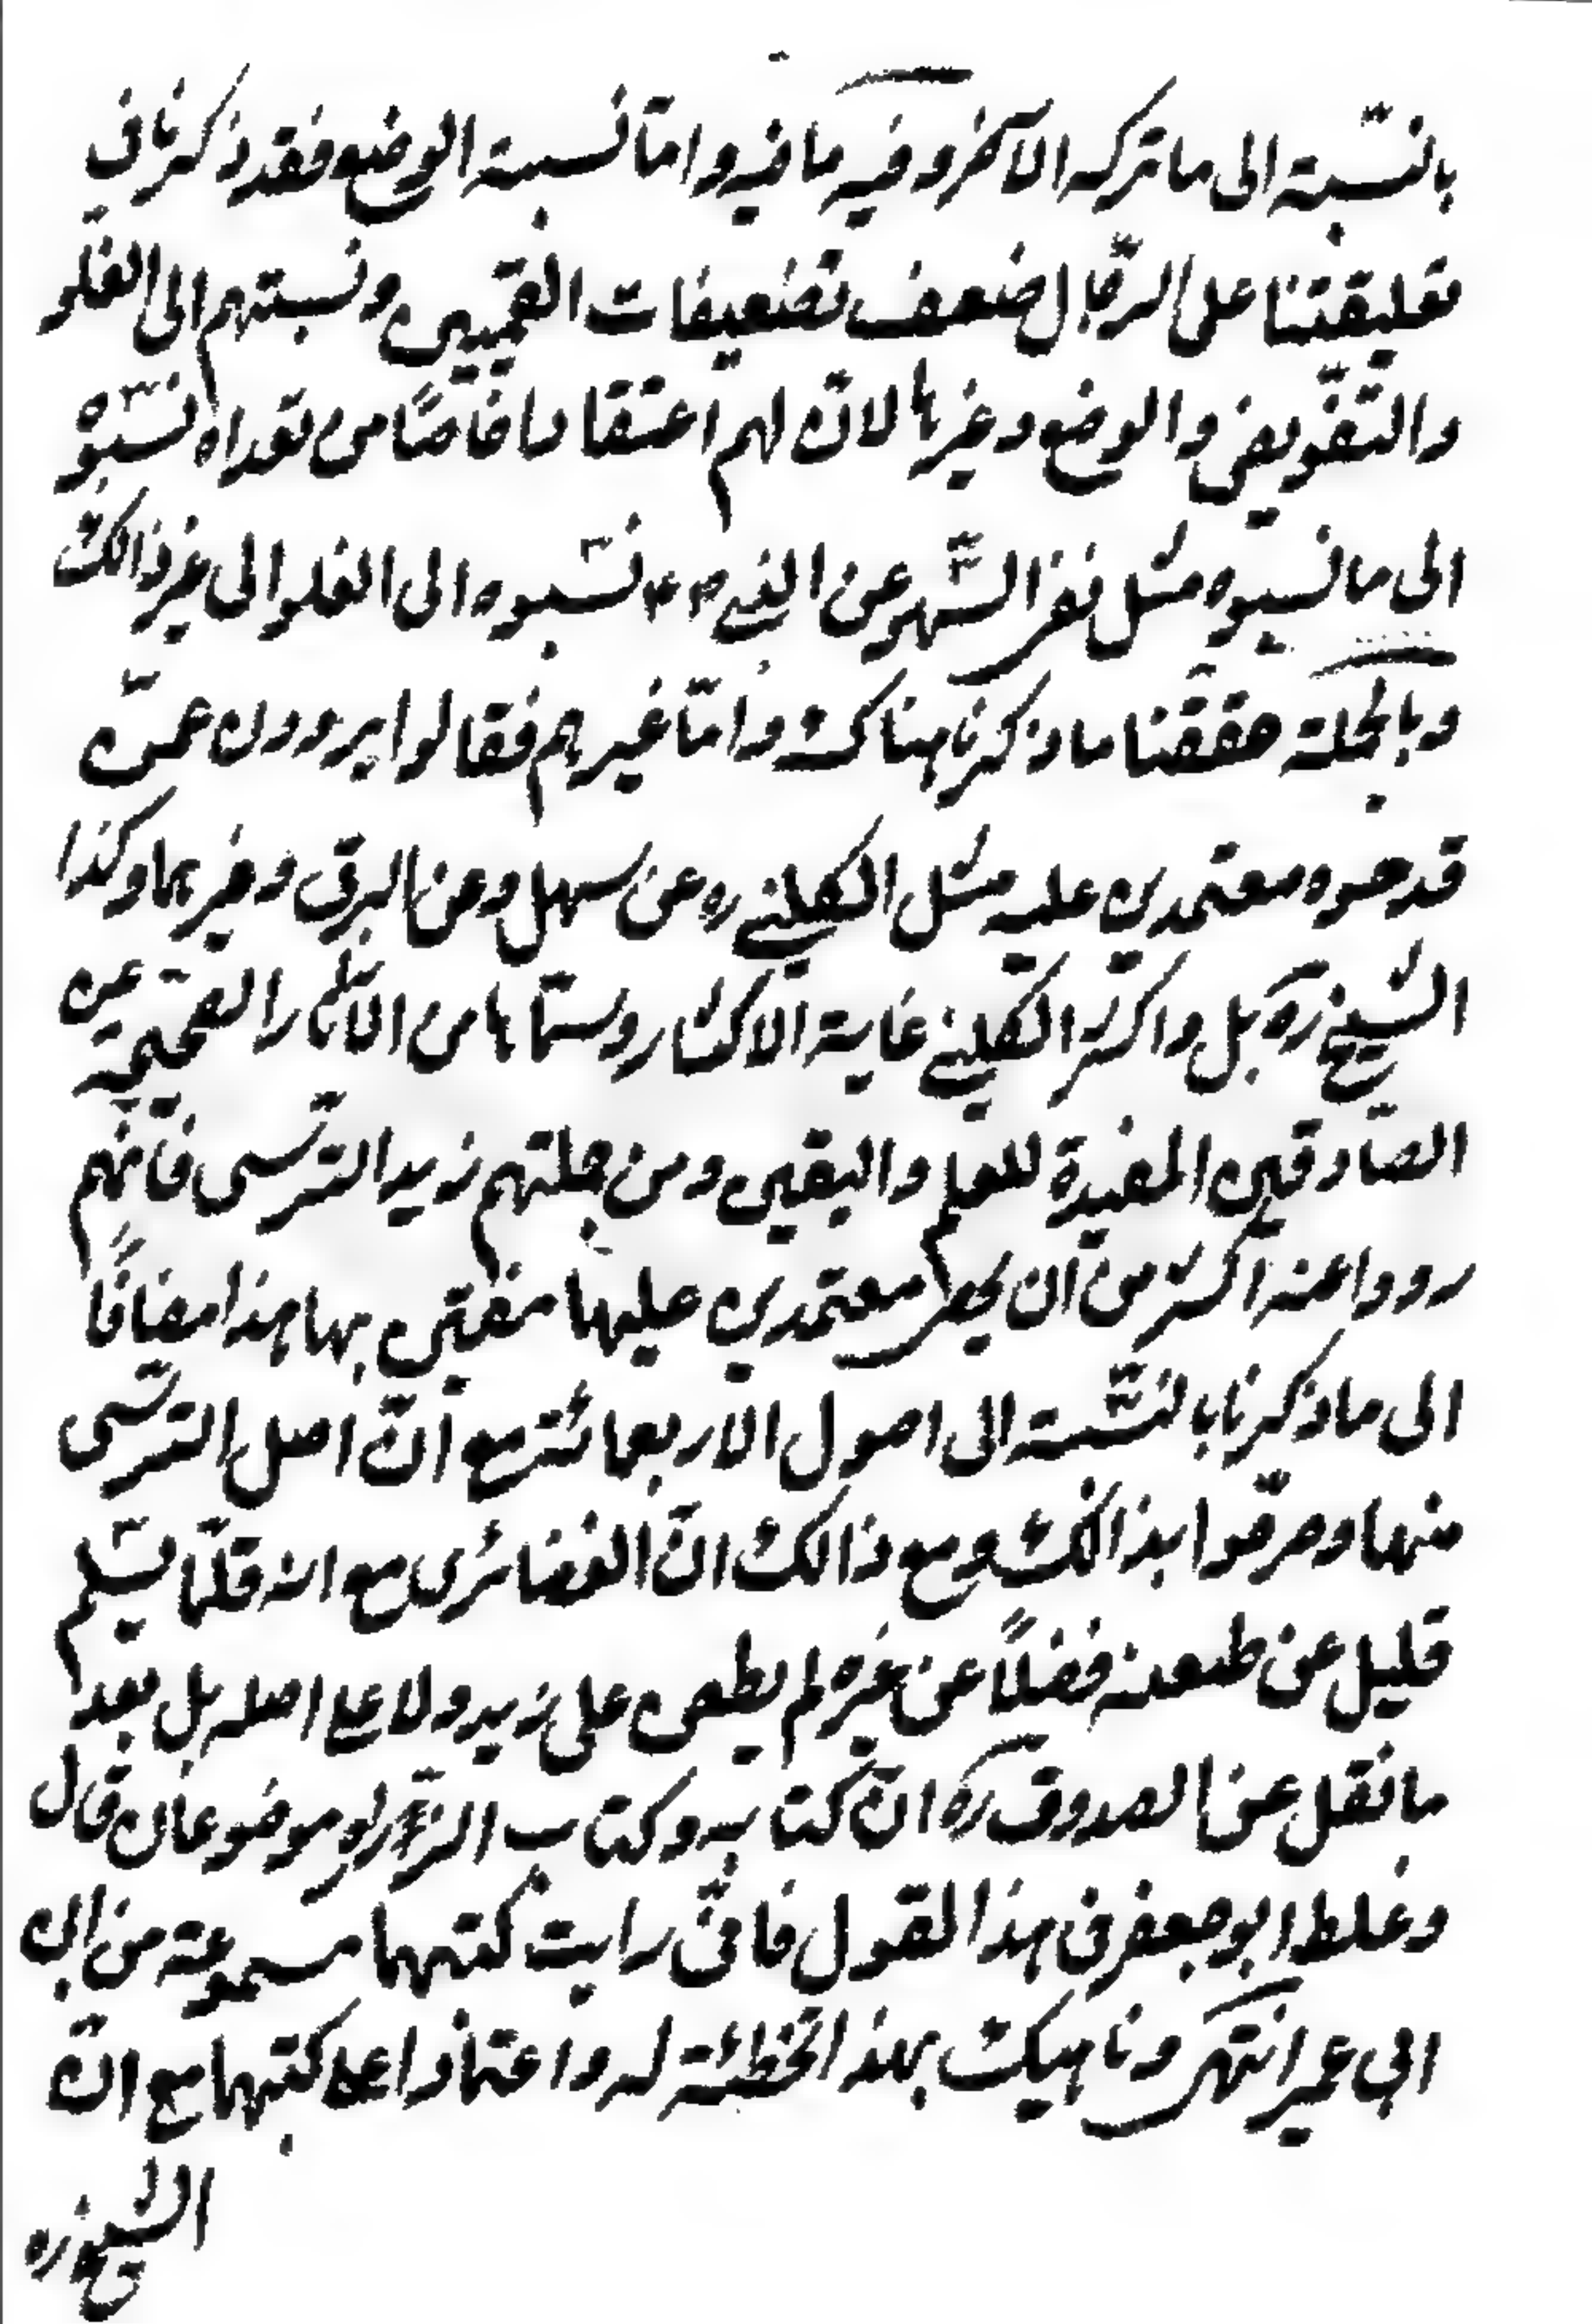 بالنسّبة الى ما تركه الآخر وفيه ما فيه وامّا نسبة الوضع فقد ذكرنا في
تعليقتنا على الرّجال ضعف تضعيفات القمّيين ونسبتهم الى الغلّو
والتفّويض والوضع وغيرها لانّ لهم اعتقادا خاصّا من تعداه نسّبوه
الى ما نسبوه مثل نفى السّهو عن النبي ص نسّبوه الى الغلو الى غير ذالك
وبالجملة حققّنا ما ذكرنا هناك وامّا غيرهم فقالوا يروون عمّن
قدحوه معتمدين عليه مثل الكليني ره عن سهل وعن البرقي وغيرهما وكذا
الشيخ ره بل واكثر الكليني غاية الاكثار وسمّاها من الاثار الصّحيحة عن
الصّادقين المفيدة للعلم واليقين ومن جملتهم زيد النرّسى فانّهم
رووا عنه اكثر من ان يحصى معتمدين عليها مفتين بها هذا مضافًا
الى ما ذكرنا بالنسّبة الى اصول الاربعمائة مع انّ اصل النرّسى
منها وصرّحوا بذالك ومع ذالك انّ الغضائرى مع انه قلّما يسّلم
قليل عن طعنه فضلًا عن غيره لم يطعن على زيد ولا على اصله بل بعد
ما نقل عن الصدوق ره انّ كتابه وكتاب الزرّاد موضوعان قال
وغلط ابو جعفر في هذا القول فانّى رايت كتبهما مسموعة من ابن
ابي عمير انتهى وناهيك بهذا تخطئة له واعتمادا على كتبهما مع انّ
الشيخ ره